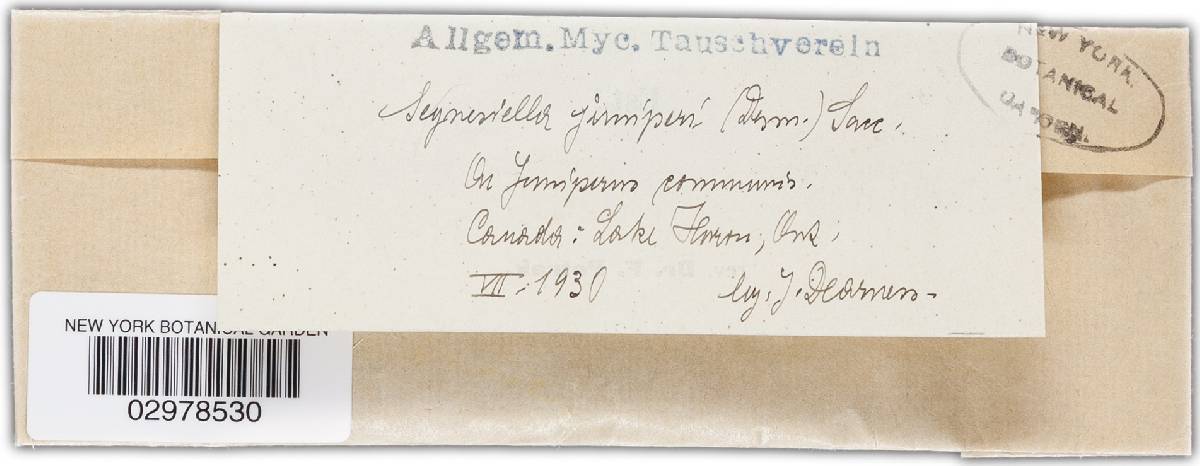 Allgem. Myc. Tauschverein
NEW YORK
BOTANICAL
GARDEN.
Seynesiella juniperi (Desm.) Sacc.
On Juniperus communis.
Canada: Lake Huron, Ont.
VII. 1930 leg. J. Dearness
NEW YORK BOTANICAL GARDEN
02978530